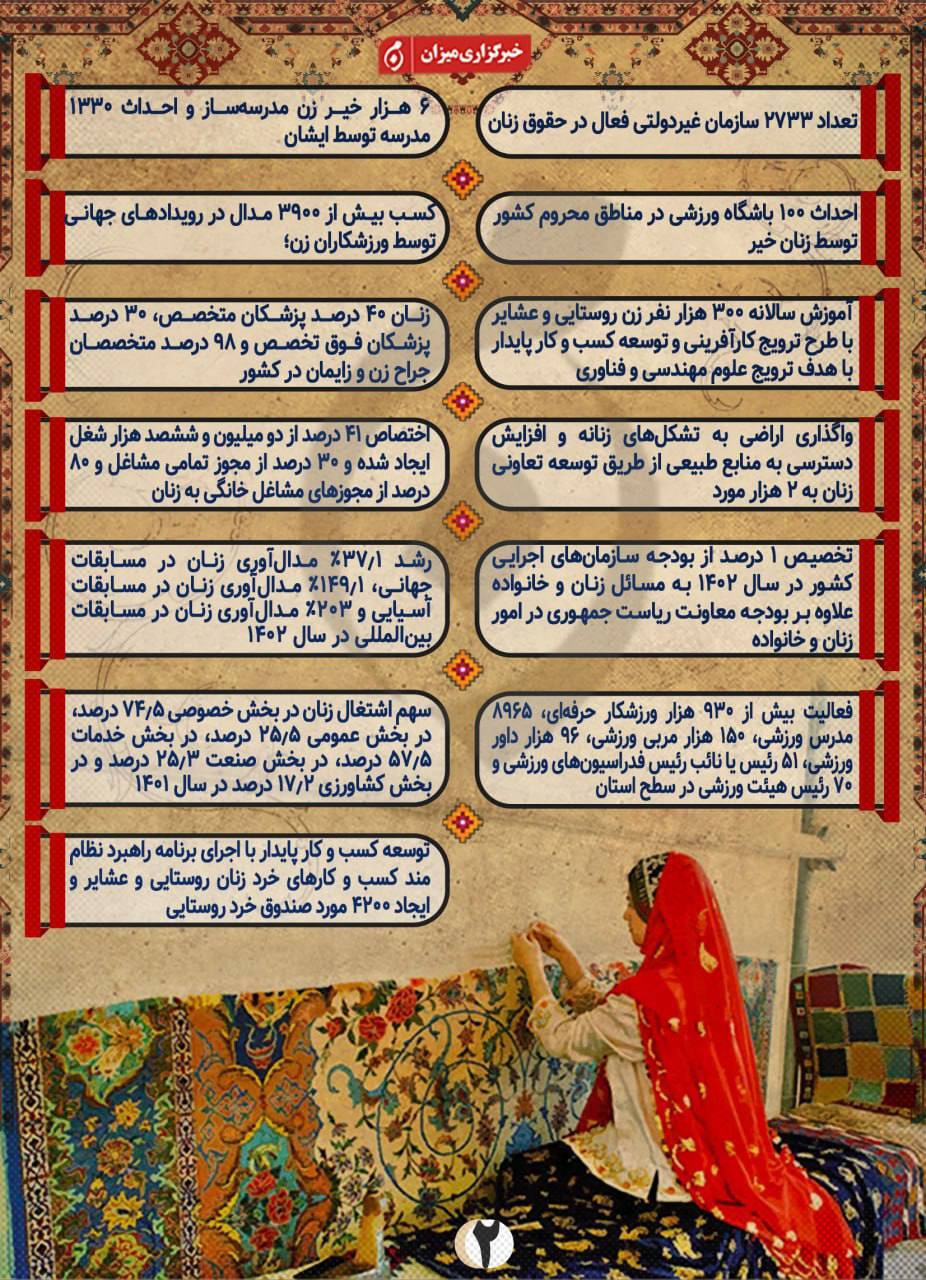 خبرگزاری میزان
تعداد ۲۷۳۳ سازمان غیردولتی فعال در حقوق زنان
۶ هزار خیر زن مدرسه‌ساز و احداث ۱۳۳۰
مدرسه توسط ایشان
احداث ۱۰۰ باشگاه ورزشی در مناطق محروم کشور
توسط زنان خیر
کسب بیش از ۳۹۰۰ مدال در رویدادهای جهانی
توسط ورزشکاران زن؛
آموزش سالانه ۳۰۰ هزار نفر زن روستایی و عشایر
با طرح ترویج کارآفرینی و توسعه کسب و کار پایدار
با هدف ترویج علوم مهندسی و فناوری
زنان ۴۰ درصد پزشکان متخصص، ۳۰ درصد
پزشکان فوق تخصص و ۹۸ درصد متخصصان
جراح زن و زایمان در کشور
واگذاری اراضی به تشکل‌های زنانه و افزایش
دسترسی به منابع طبیعی از طریق توسعه تعاونی
زنان به ۲ هزار مورد
اختصاص ۴۱ درصد از دو میلیون و ششصد هزار شغل
ایجاد شده و ۳۰ درصد از مجوز تمامی مشاغل و ۸۰
درصد از مجوزهای مشاغل خانگی به زنان
تخصیص ۱ درصد از بودجه سازمان‌های اجرایی
کشور در سال ۱۴۰۲ به مسائل زنان و خانواده
علاوه بر بودجه معاونت ریاست جمهوری در امور
زنان و خانواده
رشد ۳۷٫۱٪ مدال‌آوری زنان در مسابقات
جهانی، ۱۴۹٫۱٪ مدال‌آوری زنان در مسابقات
آسیایی و ۲۰۳٪ مدال‌آوری زنان در مسابقات
بین‌المللی در سال ۱۴۰۲
فعالیت بیش از ۹۳۰ هزار ورزشکار حرفه‌ای، ۸۹۶۵
مدرس ورزشی، ۱۵۰ هزار مربی ورزشی، ۹۶ هزار داور
ورزشی، ۵۱ رئیس یا نائب رئیس فدراسیون‌های ورزشی و
۷۰ رئیس هیئت ورزشی در سطح استان
سهم اشتغال زنان در بخش خصوصی ۷۴٫۵ درصد،
در بخش عمومی ۲۵٫۵ درصد، در بخش خدمات
۵۷٫۵ درصد، در بخش صنعت ۲۵٫۳ درصد و در
بخش کشاورزی ۱۷٫۲ درصد در سال ۱۴۰۱
توسعه کسب و کار پایدار با اجرای برنامه راهبرد نظام
مند کسب و کارهای خرد زنان روستایی و عشایر و
ایجاد ۴۲۰۰ مورد صندوق خرد روستایی
۲